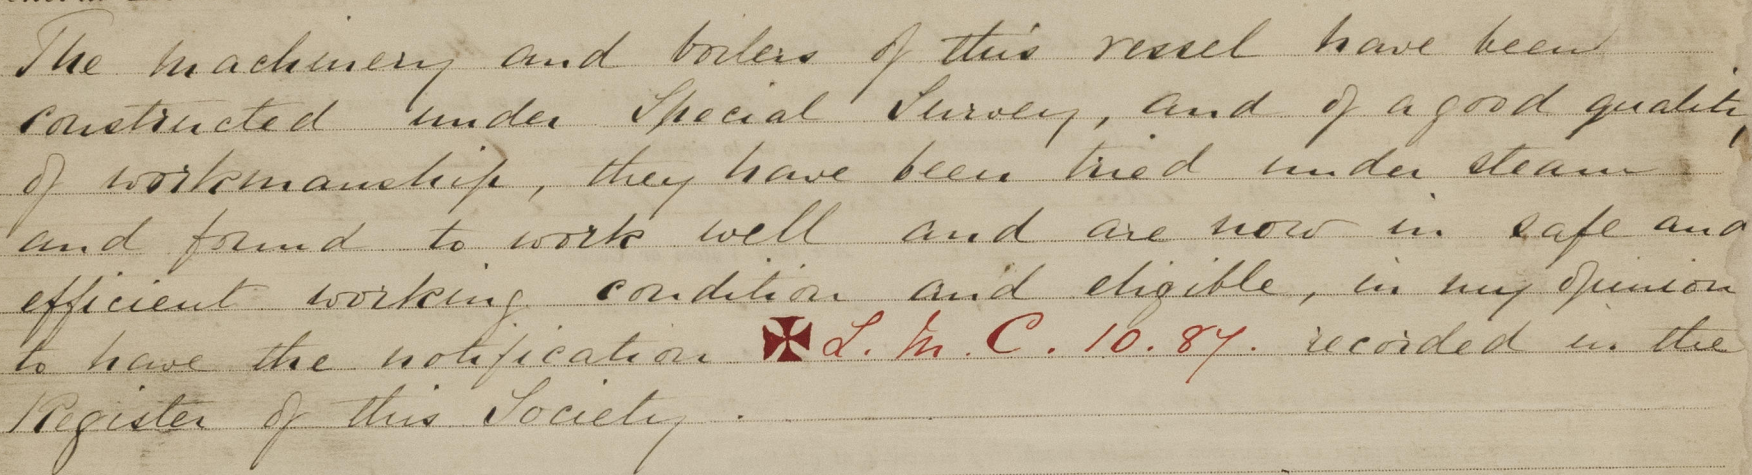 The machinery and boilers of this vessel have been
constructed under Special Survey, and of a good quality
of workmanship, they have been tried under steam
and found to work well and are now in safe and
efficient working condition and eligible, in my opinion
to have the notification ✠ L. M. C. 10. 87. recorded in the
Register of this Society.